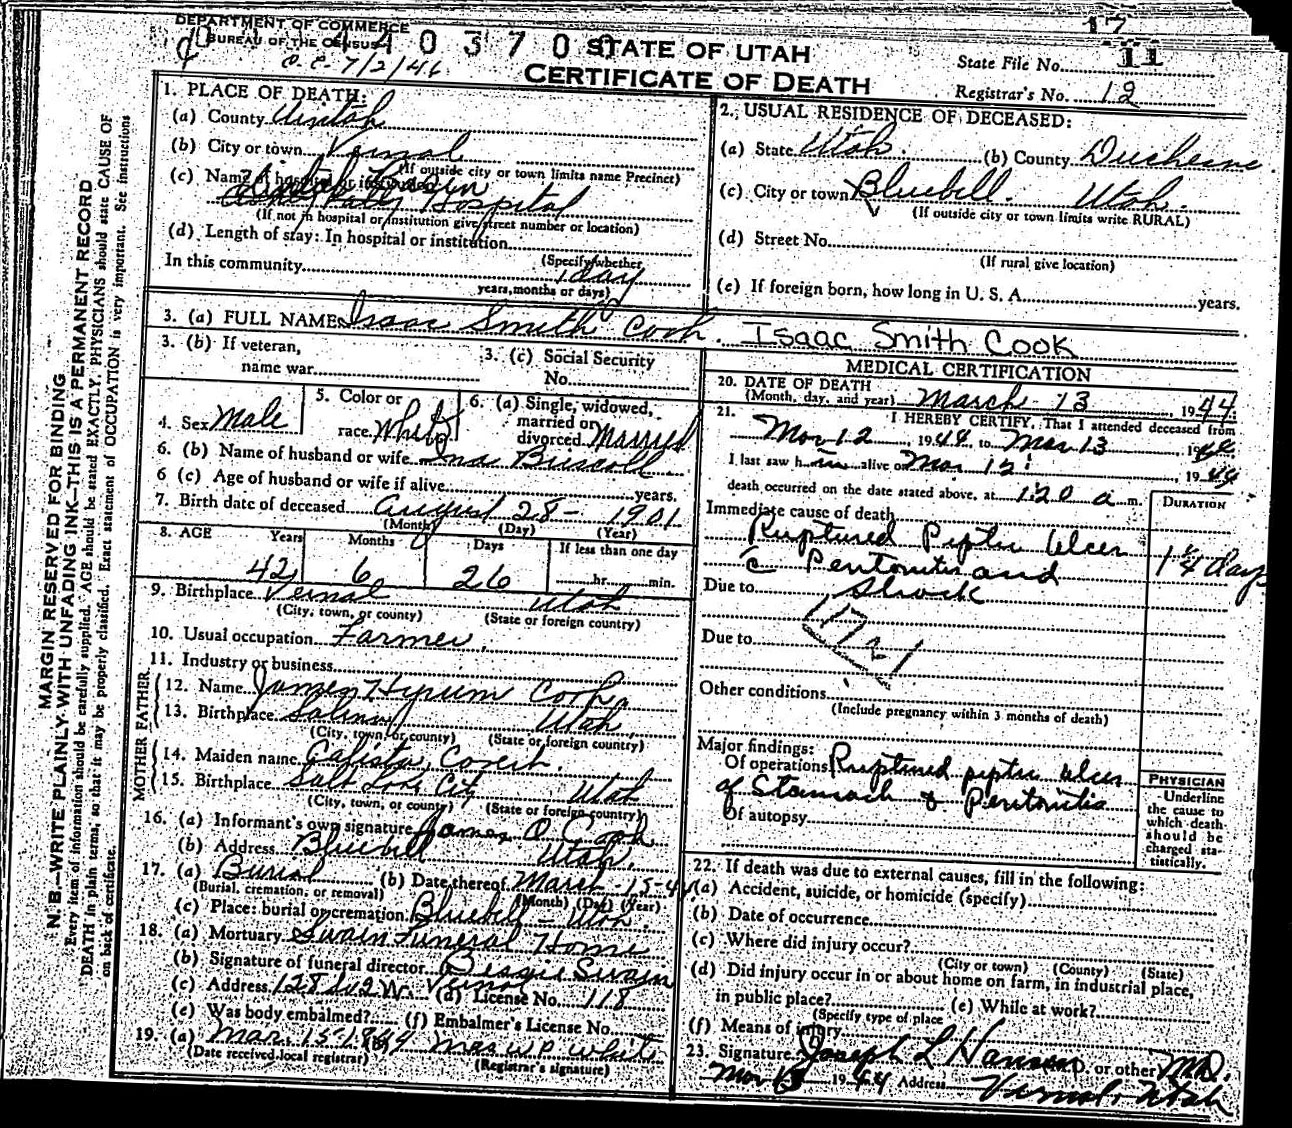 DEPARTMENT OF COMMERCE
BUREAU OF THE CENSUS
4 4 0 3 7 0 0
17
11
STATE OF UTAH
CERTIFICATE OF DEATH
State File No.
Registrar's No. 12
MARGIN RESERVED FOR BINDING
N. B.—WRITE PLAINLY WITH UNFADING INK—THIS IS A PERMANENT RECORD
Every item of information should be carefully supplied. AGE should be stated EXACTLY. PHYSICIANS should state CAUSE OF
DEATH in plain terms, so that it may be properly classified. Exact statement of OCCUPATION is very important. See instructions
on back of certificate.
1. PLACE OF DEATH:
(a) County Uintah
(b) City or town Vernal
(If outside city or town limits name Precinct)
(c) Name of hospital or institution
Hospital
(If not in hospital or institution give street number or location)
(d) Length of stay: In hospital or institution
(Specify whether
In this community 1 day
years, months or days)
2. USUAL RESIDENCE OF DECEASED:
(a) State Utah. (b) County Duchesne
(c) City or town Bluebell. Utah.
(If outside city or town limits write RURAL)
(d) Street No.
(If rural give location)
(e) If foreign born, how long in U. S. A. years.
3. (a) FULL NAME Isaac Smith Cook. Isaac Smith Cook
3. (b) If veteran,
name war
3. (c) Social Security
No.
4. Sex Male
5. Color or
race White
6. (a) Single, widowed,
married or
divorced Married
6. (b) Name of husband or wife Ina
6 (c) Age of husband or wife if alive years.
7. Birth date of deceased August 28- 1901
(Month) (Day) (Year)
8. AGE Years Months Days If less than one day
42 6 26 hr. min.
9. Birthplace Vernal Utah
(City, town, or county) (State or foreign country)
10. Usual occupation Farmer.
11. Industry or business
FATHER
12. Name James Hyrum Cook
13. Birthplace Salina Utah
(City, town, or county) (State or foreign country)
MOTHER
14. Maiden name Calista
15. Birthplace Salt Lake City Utah
(City, town, or county) (State or foreign country)
16. (a) Informant's own signature James O. Cook
(b) Address Bluebell Utah.
17. (a) Burial (b) Date thereof March-15-44
(Burial, cremation, or removal) (Month) (Day) (Year)
(c) Place: burial or cremation Bluebell - Utah.
18. (a) Mortuary Swain Funeral Home
(b) Signature of funeral director Bessie Swain
(c) Address Vernal (d) License No. 118
(e) Was body embalmed? (f) Embalmer's License No.
19. (a) Mar. 15-1944 (b) Mrs W.P. White
(Date received local registrar) (Registrar's signature)
MEDICAL CERTIFICATION
20. DATE OF DEATH
(Month, day, and year) March 13, 1944.
21. I HEREBY CERTIFY, That I attended deceased from
Mar 12, 1944, to Mar 13 1944
I last saw him alive on Mar 12 1944
death occurred on the date stated above, at 1:20 a m.
DURATION
Immediate cause of death
Ruptured Peptic Ulcer
c̄ Peritonitis and 1¼ days
Due to Shock
Due to
Other conditions
(Include pregnancy within 3 months of death)
Major findings:
Of operations Ruptured peptic ulcer
of Stomach & Peritonitis
Of autopsy
PHYSICIAN
Underline
the cause to
which death
should be
charged sta-
tistically.
22. If death was due to external causes, fill in the following:
(a) Accident, suicide, or homicide (specify)
(b) Date of occurrence
(c) Where did injury occur?
(City or town) (County) (State)
(d) Did injury occur in or about home on farm, in industrial place,
in public place? (e) While at work?
(Specify type of place
(f) Means of injury
23. Signature Joseph L Hansen D. or other MD.
Mar 13 1944 Address Vernal, Utah